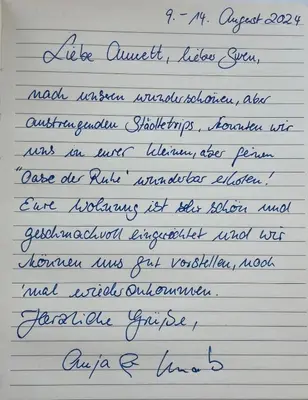 9. - 14. August 2024
Liebe Annett, lieber Sven,
nach unseren wunderschönen, aber
anstrengenden Städtetrips, konnten wir
uns in eurer kleinen, aber feinen
"Oase der Ruhe" wunderbar erholen!
Eure Wohnung ist sehr schön und
geschmackvoll eingerichtet und wir
können uns gut vorstellen, noch
'mal wiederzukommen.
Herzliche Grüße,
Anja &